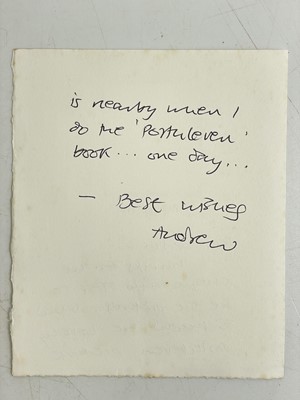 is nearby when I
do the 'Porthleven'
book... one day...
— Best wishes
Andrew